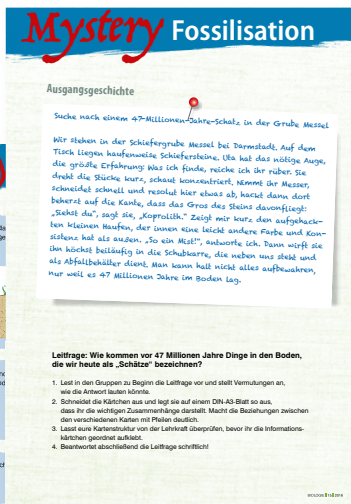 Mystery Fossilisation
Ausgangsgeschichte
Suche nach einem 47-Millionen-Jahre-Schatz in der Grube Messel
Wir stehen in der Schiefergrube Messel bei Darmstadt. Auf dem
Tisch liegen haufenweise Schiefersteine. Uta hat das nötige Auge,
die größte Erfahrung: Was ich finde, reiche ich ihr rüber. Sie
dreht die Stücke kurz, schaut konzentriert, nimmt ihr Messer,
schneidet schnell und resolut hier etwas ab, hackt dann dort
beherzt auf die Kante, dass das Gros des Steins davonfliegt:
„Siehst du", sagt sie, „Koprolith." Zeigt mir kurz den aufgehack-
ten kleinen Haufen, der innen eine leicht andere Farbe und Kon-
sistenz hat als außen. „So ein Mist!", antworte ich. Dann wirft sie
ihn höchst beiläufig in die Schubkarre, die neben uns steht und
als Abfallbehälter dient. Man kann halt nicht alles aufbewahren,
nur weil es 47 Millionen Jahre im Boden lag.
Leitfrage: Wie kommen vor 47 Millionen Jahre Dinge in den Boden,
die wir heute als „Schätze" bezeichnen?
1. Lest in den Gruppen zu Beginn die Leitfrage vor und stellt Vermutungen an,
wie die Antwort lauten könnte.
2. Schneidet die Kärtchen aus und legt sie auf einem DIN-A3-Blatt so aus,
dass ihr die wichtigen Zusammenhänge darstellt. Macht die Beziehungen zwischen
den verschiedenen Karten mit Pfeilen deutlich.
3. Lasst eure Kartenstruktur von der Lehrkraft überprüfen, bevor ihr die Informations-
kärtchen geordnet aufklebt.
4. Beantwortet abschließend die Leitfrage schriftlich!